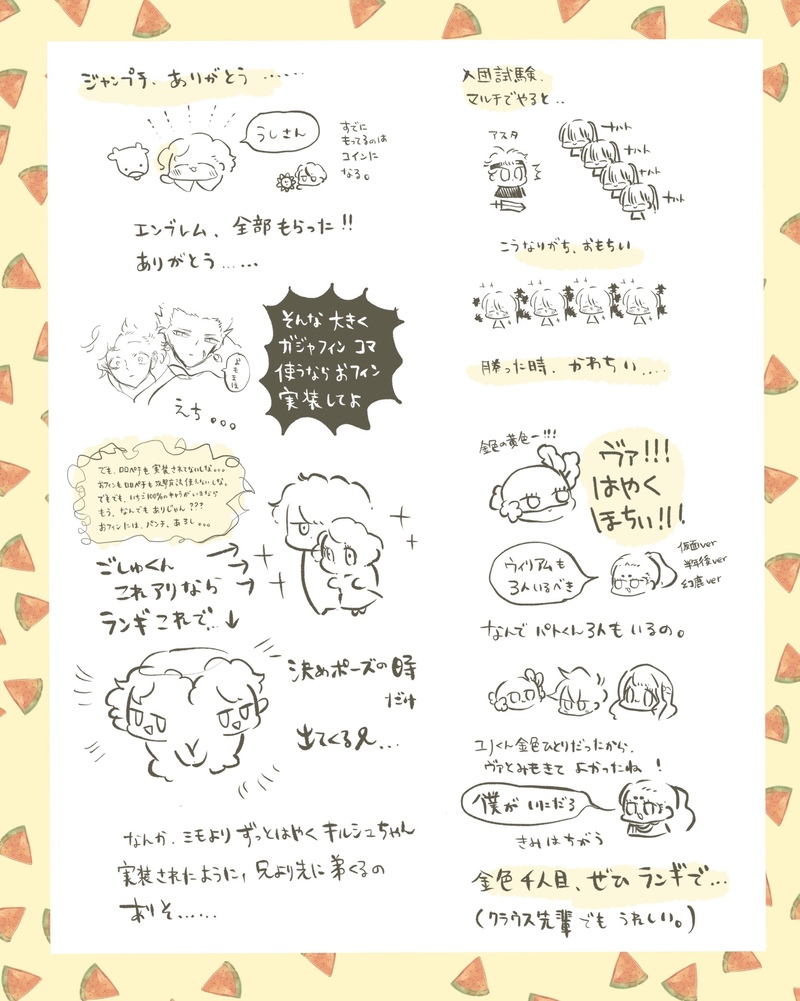 ジャンプチ、ありがとう ……
うしさん
すでに
もってるのは
コインに
なる。
エンブレム、全部もらった!!
ありがとう……
そんな大きく
ガジャフィン コマ
使うならおフィン
実装してよ
えち。。。
でも、ロロペチも実装されてないしな。。。
おフィンもロロペチも攻撃方法使えないしな。
でもでも、いちご100%のキャラがいるなら
もう、なんでもありじゃん???
おフィンには、パンチ、あるし。。。
ごしゅくん
これアリなら
ランギこれで…↓
決めポーズの時
だけ
出てくる兄…
なんか、ミモより ずっとはやく キルシュちゃん
実装されたように、兄より先に弟くるの
ありそ……
入団試験、
マルチでやると..
アスタ
ナハト
ナハト
ナハト
ナハト
こうなりがち、おもちい
勝った時、かわちぃ....
金色の黄色ー!!!
ヴァ!!!
はやく
ほちぃ!!!
ウィリアムも
3人いるべき
仮面ver
幻鹿ver
なんで パトくん3人もいるの。
ユノくん金色ひとりだったから、
ヴァとみもきて よかったね!
僕が いにだろ
きみはちがう
金色4人目、ぜひ ランギで…
(クラウス先輩でも うれしい。)